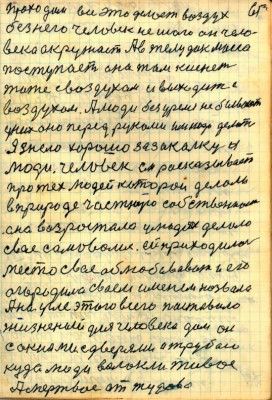 65
проходим все это делает воздух
без него человек не шого он чело-
века окружает А в телу как масса
поступает она там киснет
тоже с воздухом и выходит с
воздухом. А люди без уреж не бывают
у них оно перед руками им надо делать
Я знело хорошо за закалку и
люди. человек сл расказывает
про тех людей которой делоль
в природе частную собственность
она возростала и людях делоло
свае самоволия. ей приходилось
место свае облюбовават и его
огородила сваем именем назвала
Ана у пле этого всего паставило
жизненый для человека дом он
с окнами с дверями с трубаю
куда люди волокли живое
А мертвое от тудова